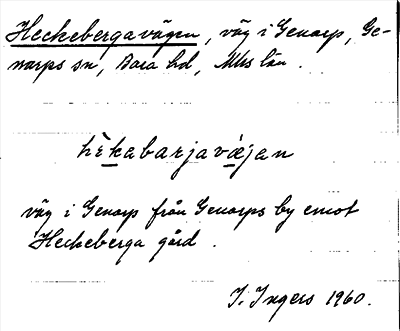 Heckebergavägen, väg i Genarp, Ge-
narps sn, Bara hd, Mhs län.
hèkabarjavǽjan
väg i Genarp från Genarps by emot
Heckeberga gård.
I. Ingers 1960.